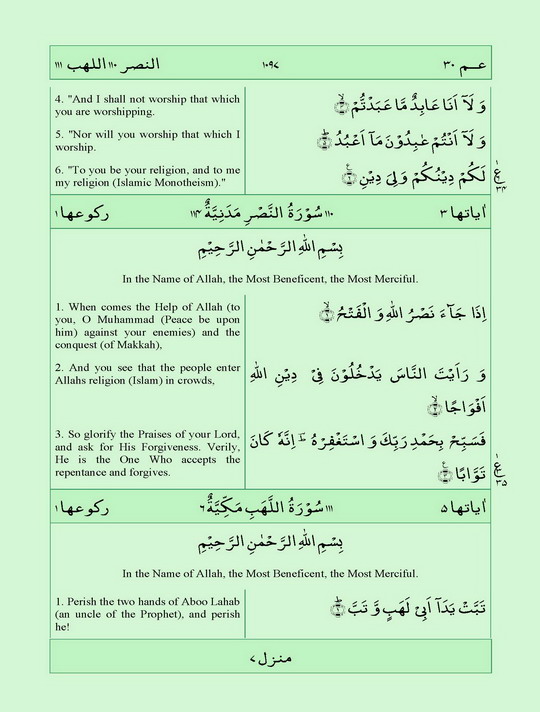 النصر ١١٠ اللهب ١١١ ١٠٩٧ عـم ٣٠
4. "And I shall not worship that which
you are worshipping.
وَ لَاۤ اَنَا عَابِدٌ مَّا عَبَدْتُّمْ ۙ﴿۴﴾
5. "Nor will you worship that which I
worship.
وَ لَاۤ اَنْتُمْ عٰبِدُوْنَ مَاۤ اَعْبُدُ ؕ﴿۵﴾
6. "To you be your religion, and to me
my religion (Islamic Monotheism)."
لَكُمْ دِيْنُكُمْ وَلِيَ دِيْنِ ﴿۶﴾
ع
٣٤
اٰياتها ٣ ١١٠ سُوْرَةُ النَّصْرِ مَدَنِيَّةٌ ١١٤ ركوعها ١
بِسْمِ اللهِ الرَّحْمٰنِ الرَّحِيْمِ
In the Name of Allah, the Most Beneficent, the Most Merciful.
1. When comes the Help of Allah (to
you, O Muhammad (Peace be upon
him) against your enemies) and the
conquest (of Makkah),
اِذَا جَآءَ نَصْرُ اللهِ وَ الْفَتْحُ ۙ﴿۱﴾
2. And you see that the people enter
Allahs religion (Islam) in crowds,
وَ رَاَيْتَ النَّاسَ يَدْخُلُوْنَ فِيْ دِيْنِ اللهِ
اَفْوَاجًا ۙ﴿۲﴾
3. So glorify the Praises of your Lord,
and ask for His Forgiveness. Verily,
He is the One Who accepts the
repentance and forgives.
فَسَبِّحْ بِحَمْدِ رَبِّكَ وَ اسْتَغْفِرْهُ ؔ اِنَّهٗ كَانَ
تَوَّابًا ﴿۳﴾
ع
٣٥
اٰياتها ٥ ١١١ سُوْرَةُ اللَّهَبِ مَكِّيَّةٌ ٦ ركوعها ١
بِسْمِ اللهِ الرَّحْمٰنِ الرَّحِيْمِ
In the Name of Allah, the Most Beneficent, the Most Merciful.
1. Perish the two hands of Aboo Lahab
(an uncle of the Prophet), and perish
he!
تَبَّتْ يَدَاۤ اَبِيْ لَهَبٍ وَّ تَبَّ ؕ﴿۱﴾
منزل ٧